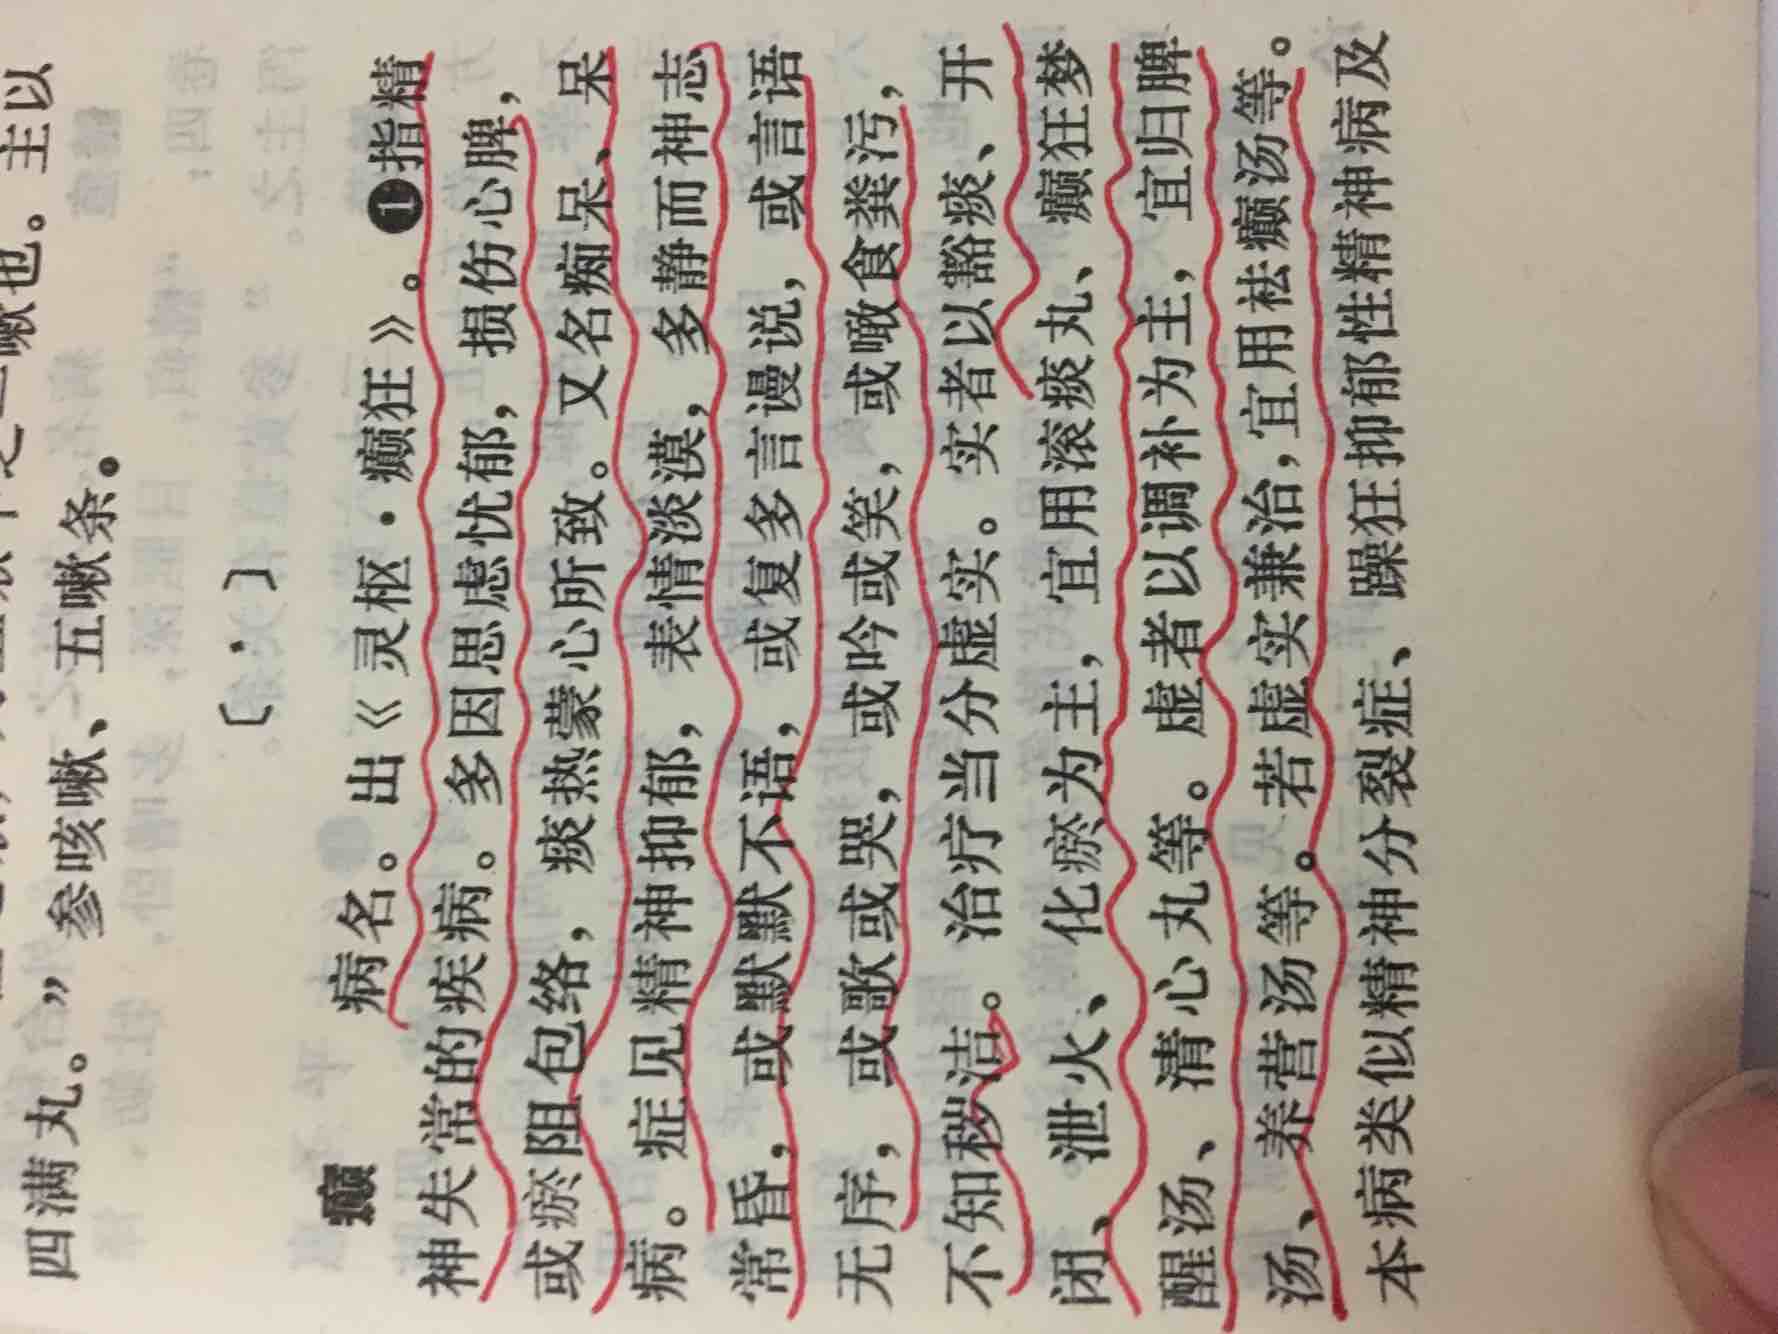 四满丸。”参咳嗽、五嗽条。
〔·〕
癫 病名。出《灵枢·癫狂》。❶指精
神失常的疾病。多因思虑忧郁，损伤心脾，
或瘀阻包络，痰热蒙心所致。又名痴呆、呆
病。症见精神抑郁，表情淡漠，多静而神志
常昏，或默默不语，或复多言谩说，或言语
无序，或歌或哭，或吟或笑，或噉食粪污，
不知秽洁。治疗当分虚实。实者以豁痰、开
闭、泄火、化瘀为主，宜用滚痰丸、癫狂梦
醒汤、清心丸等。虚者以调补为主，宜归脾
汤、养营汤等。若虚实兼治，宜用祛癫汤等。
本病类似精神分裂症、躁狂抑郁性精神病及